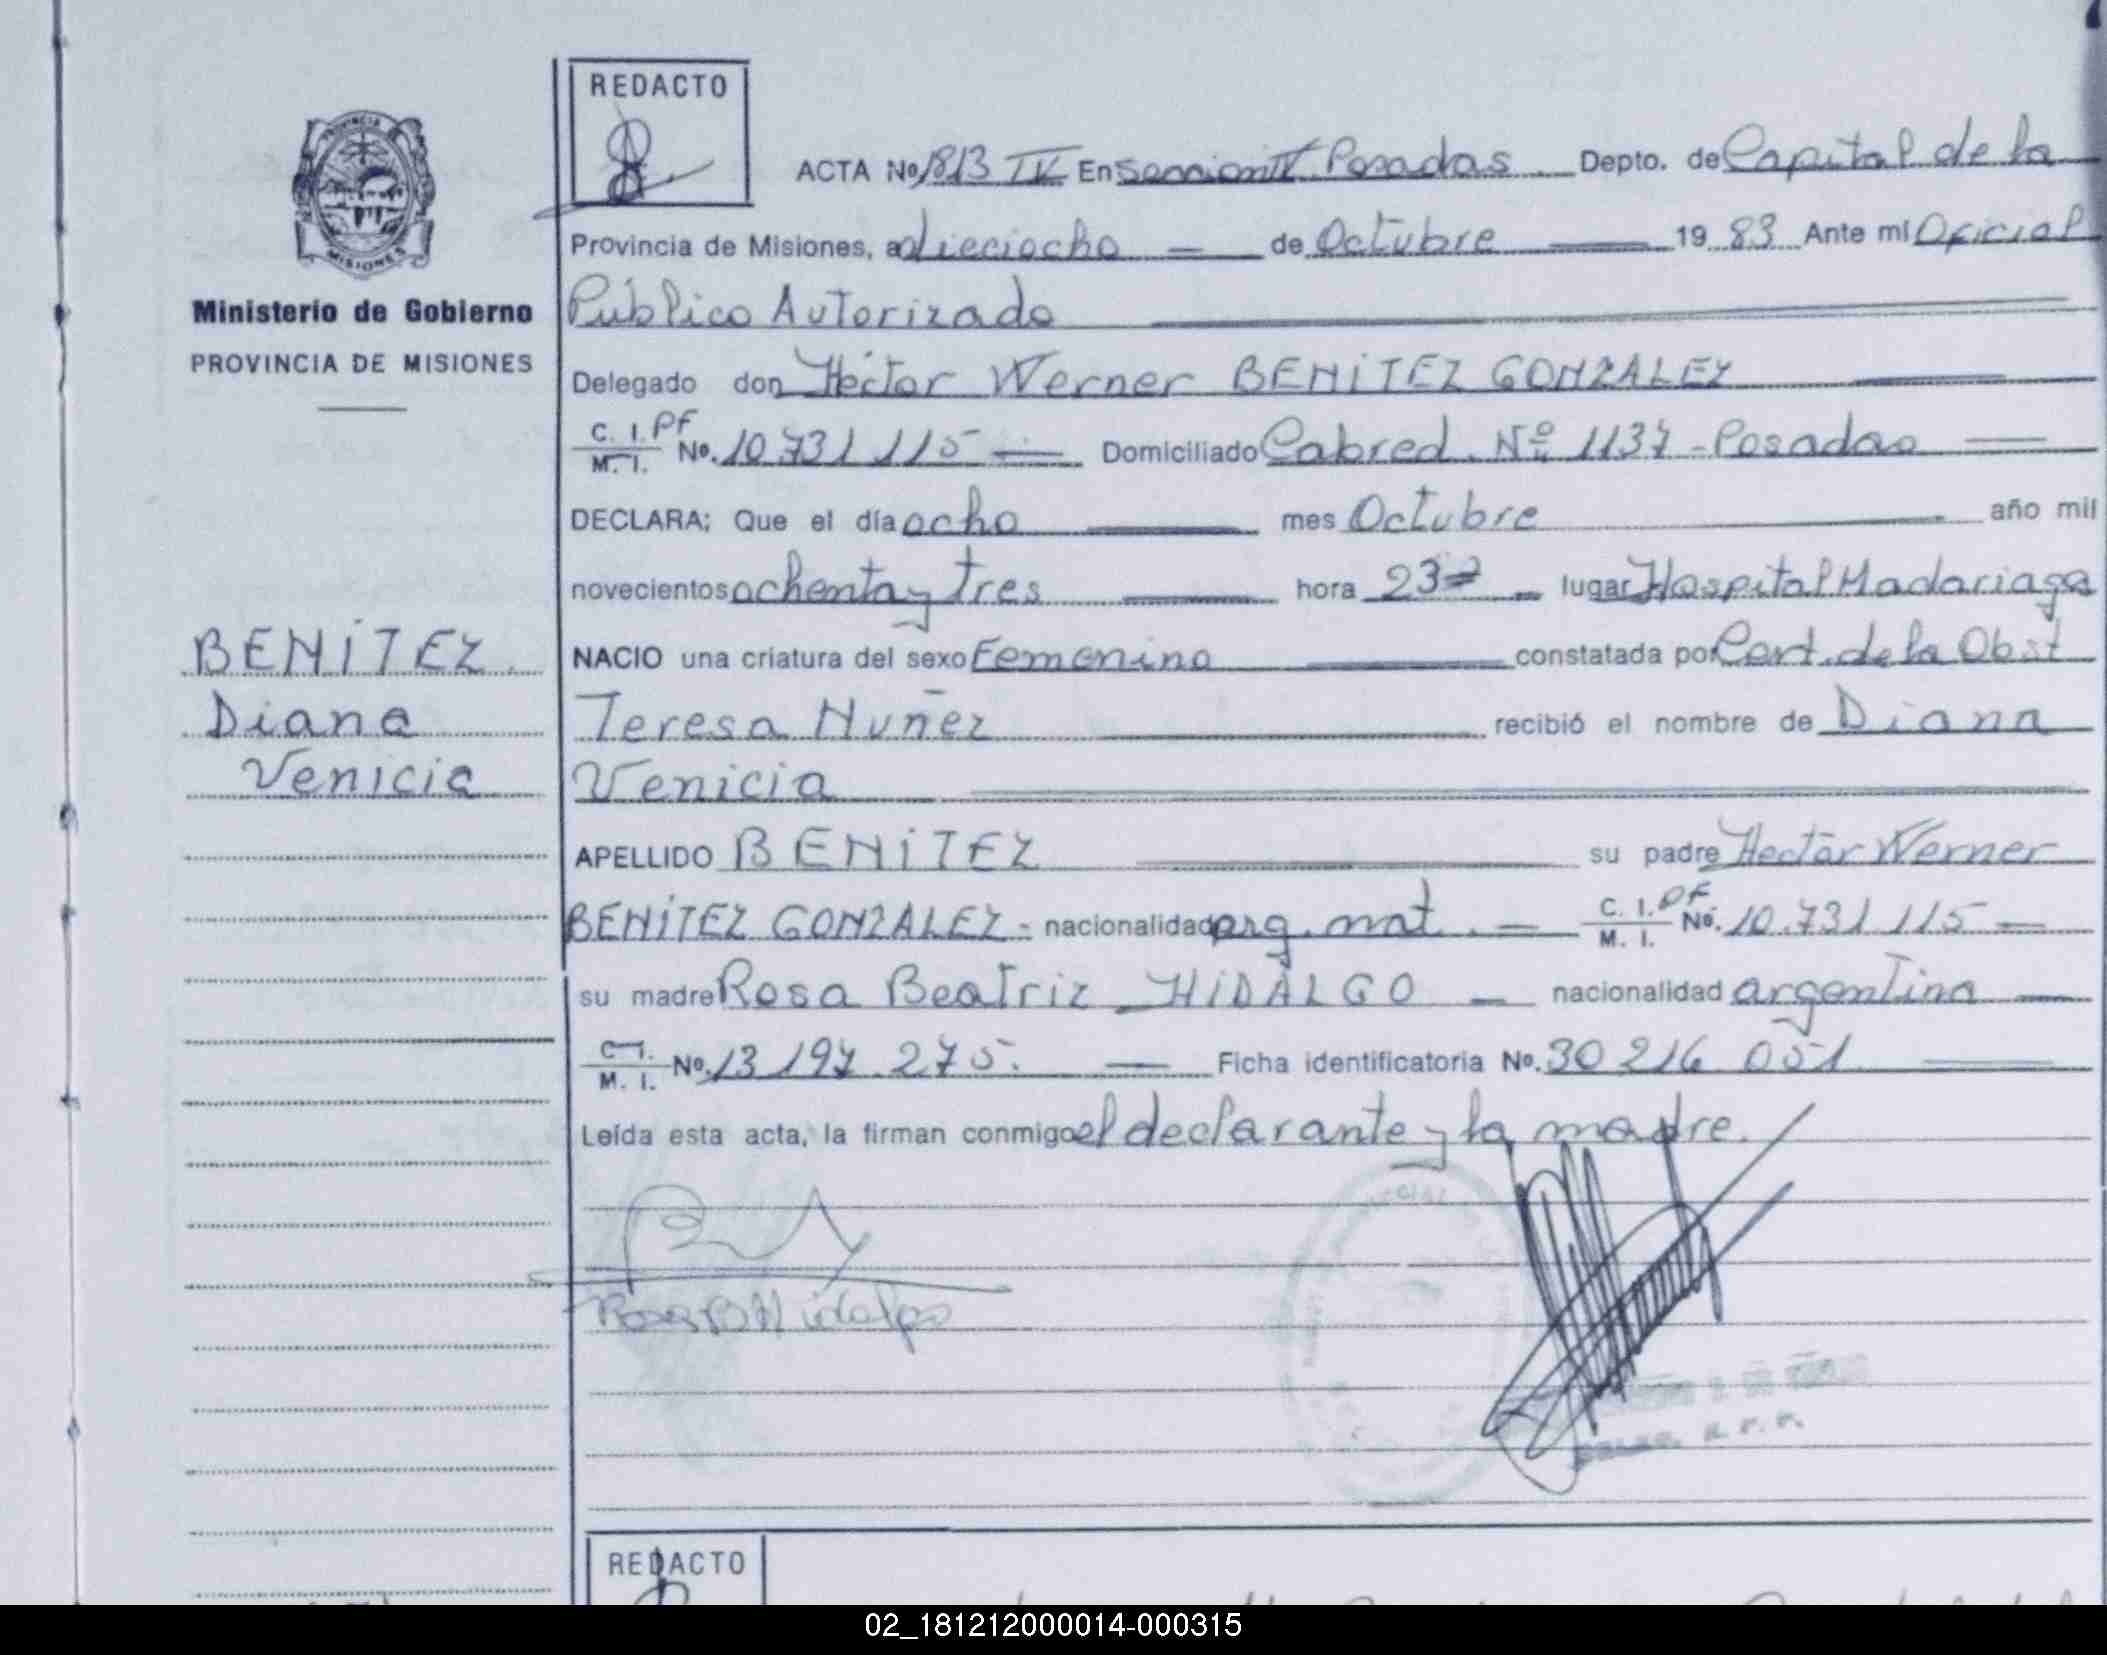 REDACTO
PROVINCIA
MISIONES
Ministerio de Gobierno
PROVINCIA DE MISIONES
BENITEZ
Diana
Venicia
ACTA No 1813 IV En Seccion IV Posadas Depto. de Capital de la
Provincia de Misiones, a dieciocho de Octubre 19 83 Ante mi Oficial
Público Autorizado
Delegado don Héctor Werner BENITEZ GONZALEZ
C. I. PF
M. I. No. 10 731 115 Domiciliado Cabred Nº 1137 - Posadas
DECLARA; Que el día ocho mes Octubre año mil
novecientos ochenta y tres hora 23 lugar Hospital Madariaga
NACIO una criatura del sexo Femenino constatada por Cert. de la Obst
Teresa Nuñez recibió el nombre de Diana
Venicia
APELLIDO BENITEZ su padre Hector Werner
BENITEZ GONZALEZ - nacionalidad arg. nat. C. I. PF
M. I. No. 10.731 115
su madre Rosa Beatriz HIDALGO nacionalidad argentina
C. I.
M. I. No. 13 197 275. Ficha identificatoria No. 30 216 051
Leída esta acta, la firman conmigo el declarante y la madre.
Rosa B Hidalgo
REDACTO
02_181212000014-000315